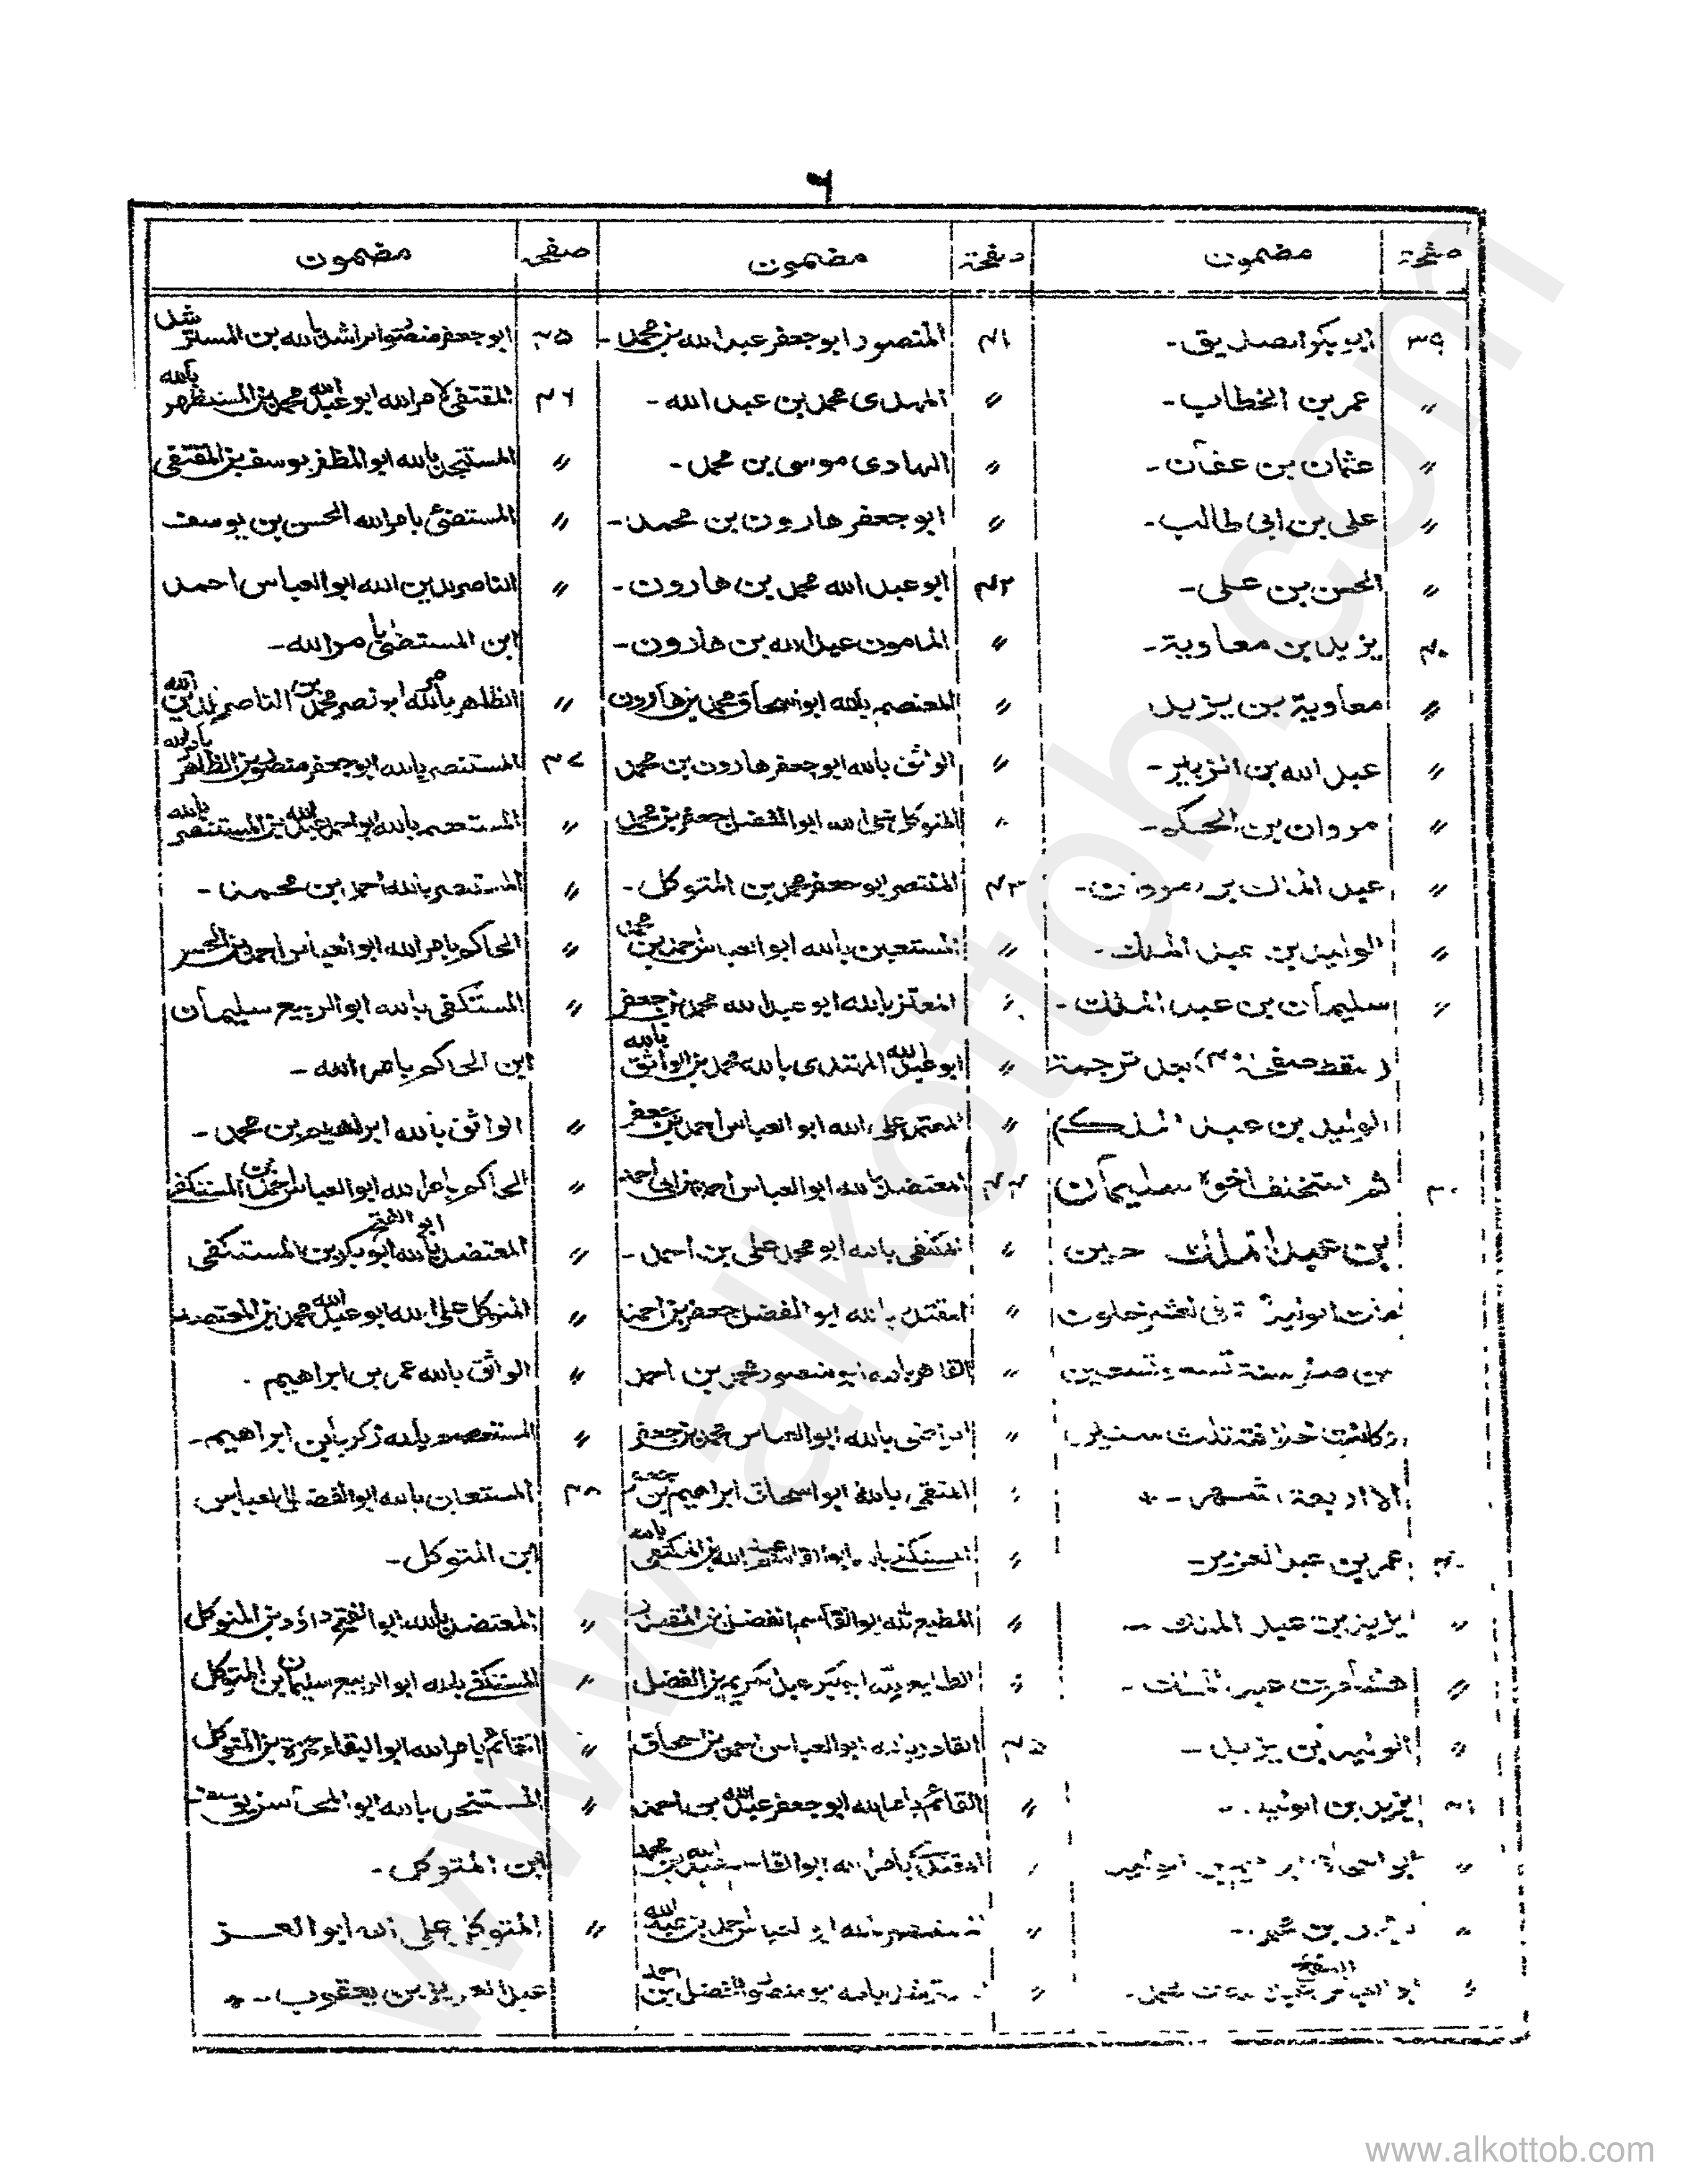 ٦
صفحة مضمون
٣٩ ابو بكر الصديق-
〃 عمر بن الخطاب-
〃 عثمان بن عفان-
〃 على بن ابى طالب-
〃 الحسن بن على-
٤٠ يزيد بن معاوية-
〃 معاوية بن يزيد
〃 عبد الله بن الزبير-
〃 مروان بن الحكم-
〃 عبد الملك بن مروان-
〃 الوليد بن عبد الملك-
〃 سليمان بن عبد الملك-
(سقط صفحة ٤٠) بعد ترجمة
الوليد بن عبد الملك
٤٠ ثم استخلف اخوه سليمان
بن عبد الملك حين
من صفر سنة تسع وتسعين
وكانت خلافته ثلث سنين
الا اربعة اشهر-*
٤٠ عمر بن عبد العزيز-
〃 يزيد بن عبد الملك-
〃 هشام بن عبد الملك-
〃 الوليد بن يزيد-
٤١ يزيد بن الوليد-
صفحة مضمون
٤١ المنصور ابو جعفر عبد الله بن محمد-
〃 المهدى محمد بن عبد الله-
〃 الهادى موسى بن محمد-
〃 ابو جعفر هارون بن محمد-
٤٢ ابو عبد الله محمد بن هارون-
〃 المامون عبد الله بن هارون-
〃 المعتصم بالله ابو اسحاق محمد بن هارون
〃 الواثق بالله ابو جعفر هارون بن محمد
〃 المتوكل على الله ابو الفضل جعفر بن محمد
٤٣ المنتصر ابو جعفر محمد بن المتوكل-
〃 المستعين بالله ابو العباس احمد بن محمد
〃 المعتز بالله ابو عبد الله محمد بن جعفر
〃 ابو عبد الله المهتدى بالله محمد بن الواثق بالله
〃 المعتمد على الله ابو العباس احمد بن جعفر
٤٤ المعتضد بالله ابو العباس احمد بن ابى احمد
〃 المكتفى بالله ابو محمد على بن احمد-
〃 المقتدر بالله ابو الفضل جعفر بن احمد
〃 القاهر بالله ابو منصور محمد بن احمد
〃 الراضى بالله ابو العباس محمد بن جعفر
〃 المتقى بالله ابو اسحاق ابراهيم بن جعفر
〃 المستكفى بالله ابو القاسم عبد الله بن المكتفى بالله
〃 المطيع لله ابو القاسم الفضل بن المقتدر
〃 الطايع لله ابو بكر عبد الكريم بن الفضل
٤٥ القادر بالله ابو العباس احمد بن اسحاق
〃 القائم بامر الله ابو جعفر عبد الله بن احمد
〃 المقتدى بامر الله ابو القاسم عبد الله بن محمد
〃 المستظهر بالله ابو العباس احمد بن عبد الله
〃 المسترشد بالله ابو منصور الفضل بن احمد
صفحة مضمون
٤٥ ابو جعفر منصور الراشد بالله بن المسترشد
٤٦ المقتفى لامر الله ابو عبد الله محمد بن المستظهر بالله
〃 المستنجد بالله ابو المظفر يوسف بن المقتفى
〃 المستضئ بامر الله الحسن بن يوسف
〃 الناصر لدين الله ابو العباس احمد
ابن المستضئ بامر الله-
〃 الظاهر بامر الله ابو نصر محمد بن الناصر لدين الله
٤٧ المستنصر بالله ابو جعفر منصور بن الظاهر بامر الله
〃 المستعصم بالله ابو احمد عبد الله بن المستنصر بالله
〃 المستنصر بالله احمد بن محمد-
〃 الحاكم بامر الله ابو العباس احمد بن الحسن
〃 المستكفى بالله ابو الربيع سليمان
ابن الحاكم بامر الله-
〃 الواثق بالله ابراهيم بن محمد-
〃 الحاكم بامر الله ابو العباس احمد بن المستكفى
〃 المعتضد بالله ابو الفتح ابو بكر بن المستكفى
〃 المتوكل على الله ابو عبد الله محمد بن المعتضد
〃 الواثق بالله عمر بن ابراهيم.
〃 المستعصم بالله زكريا بن ابراهيم-
٤٨ المستعان بالله ابو الفضل العباس
ابن المتوكل-
〃 المعتضد بالله ابو الفتح داؤد بن المتوكل
〃 المستكفى بالله ابو الربيع سليمان بن المتوكل
〃 القائم بامر الله ابو البقاء حمزة بن المتوكل
〃 المستنجد بالله ابو المحاسن يوسف
ابن المتوكل-
〃 المتوكل على الله ابو العز
عبد العزيز بن يعقوب-*
www.alkottob.com
www.alkottob.com